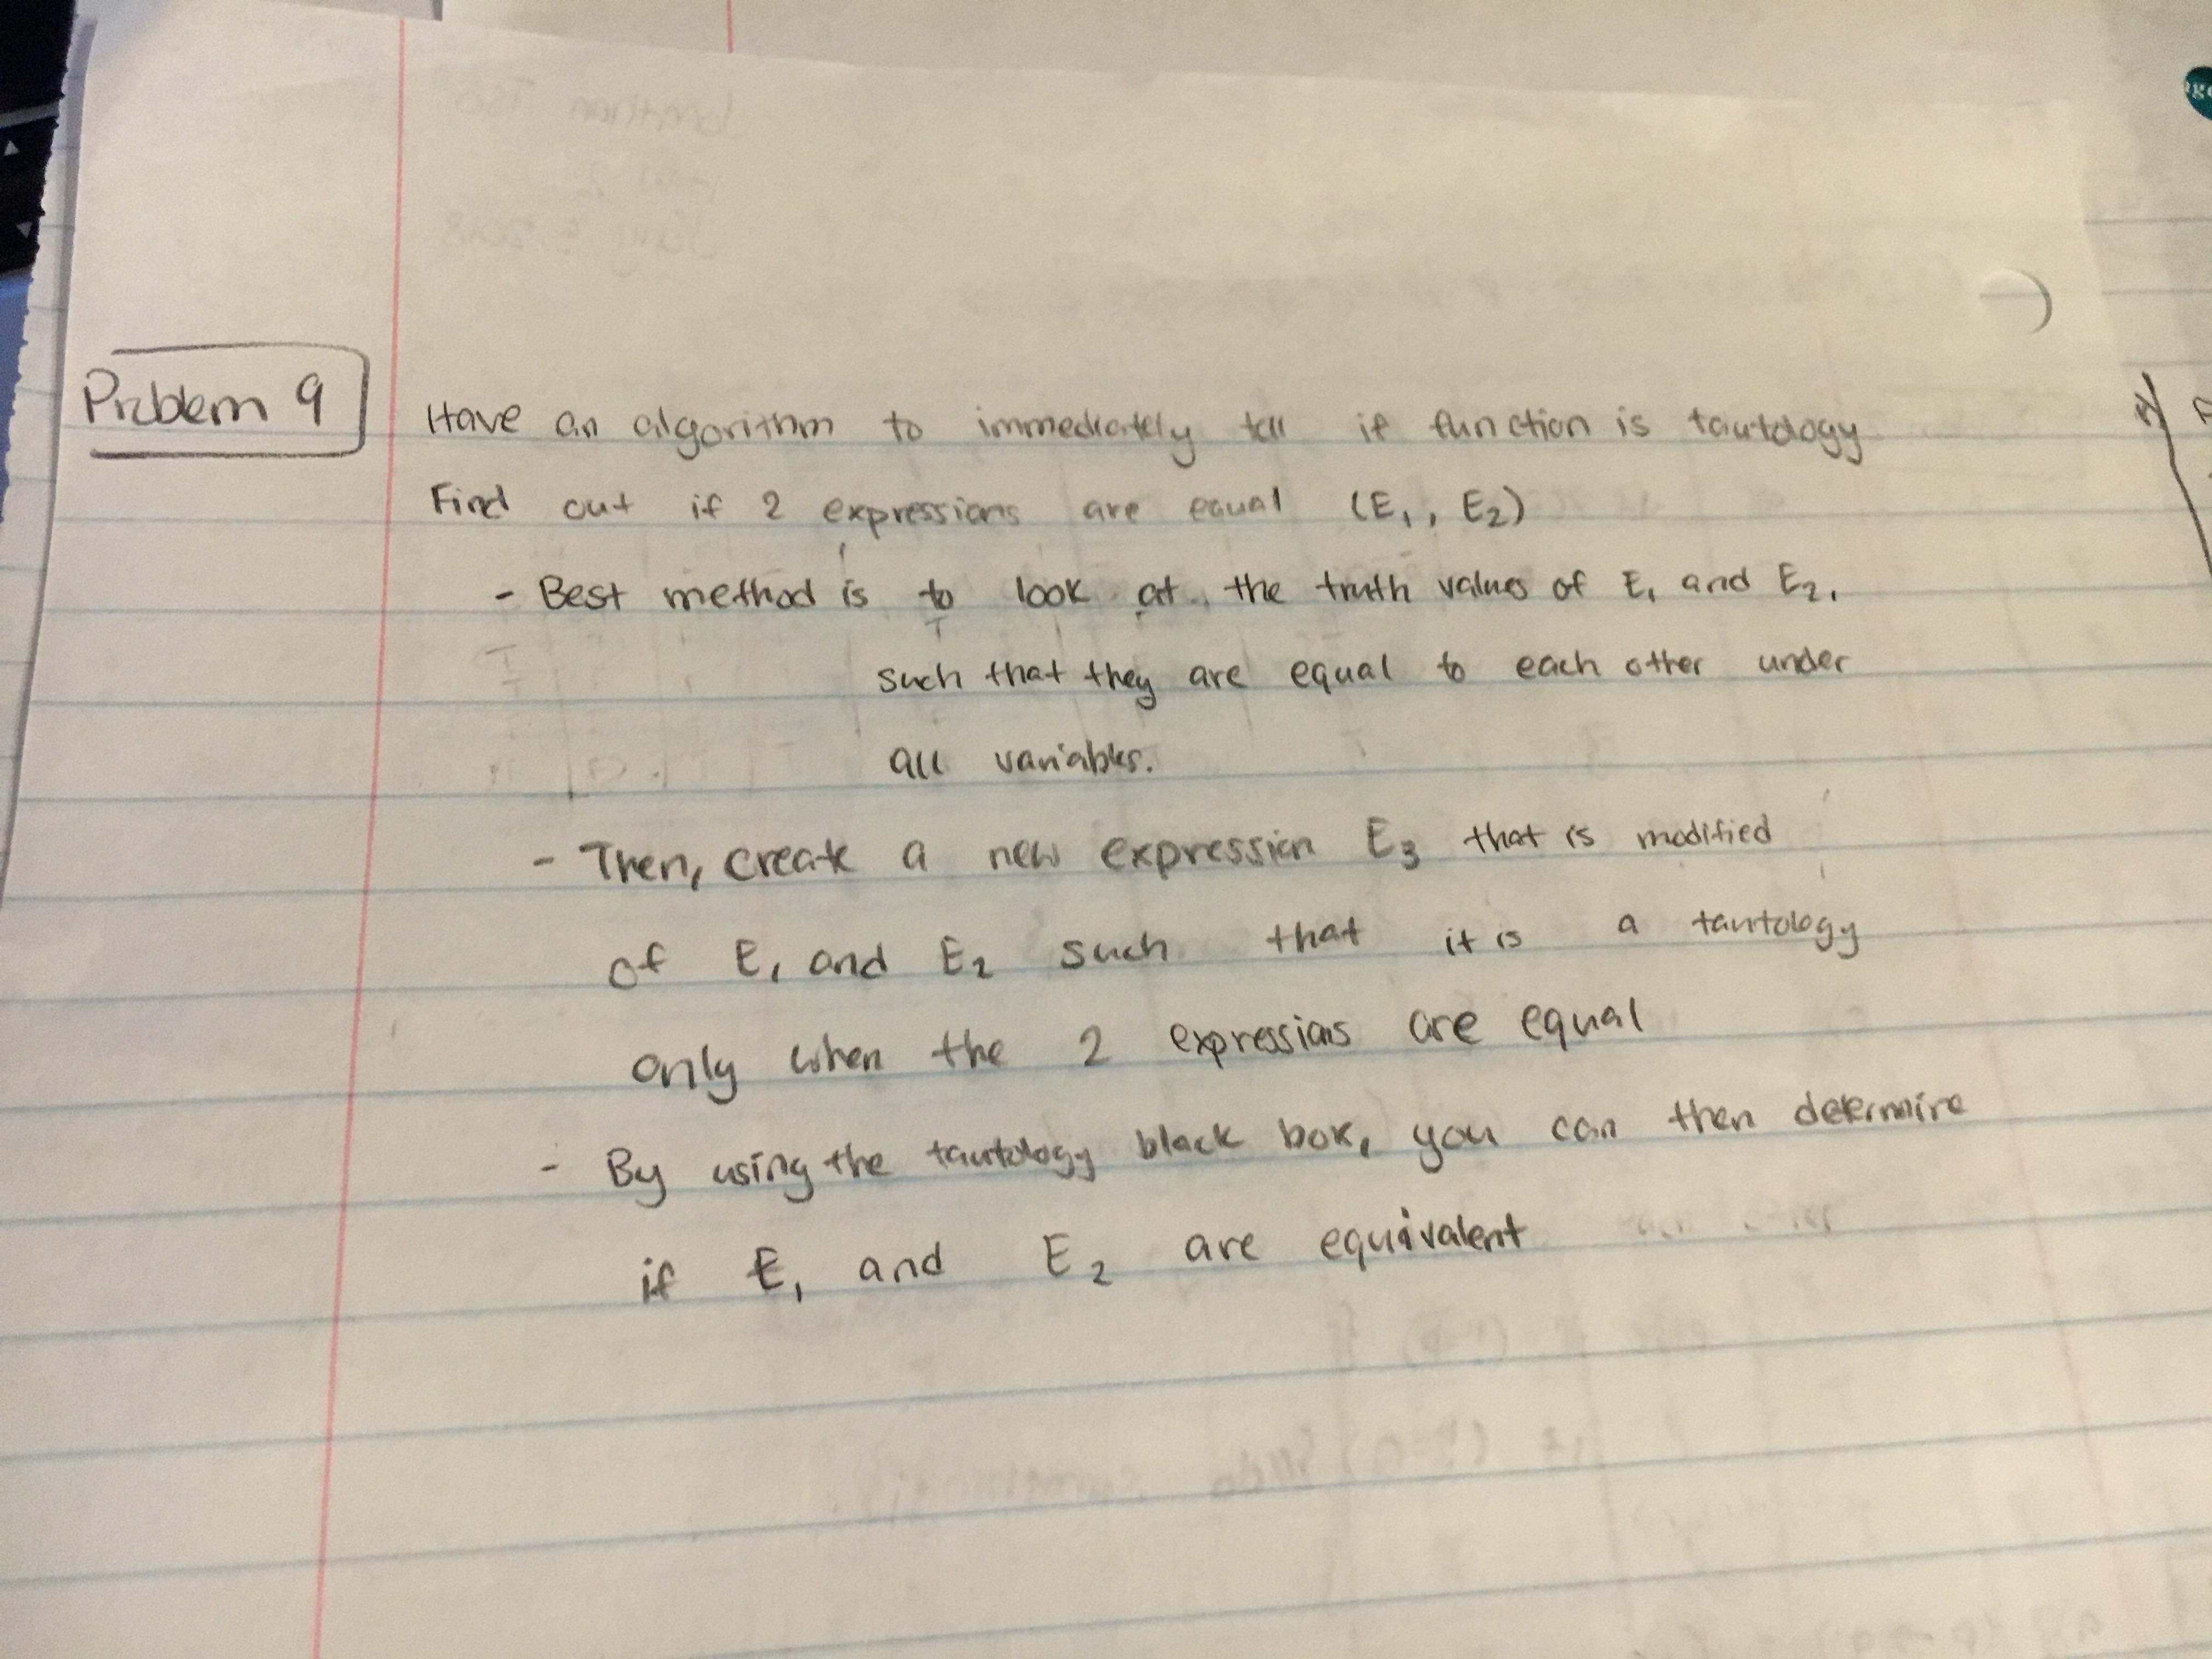 Problem 9
Have an algorithm to immediately tell if function is tautology
Find out if 2 expressions are equal (E₁, E₂)
- Best method is to look at the truth values of E₁ and E₂,
such that they are equal to each other under
all variables.
- Then, create a new expression E₃ that is modified
of E₁ and E₂ such that it is a tautology
only when the 2 expressions are equal
- By using the tautology black box, you can then determine
if E₁ and E₂ are equivalent